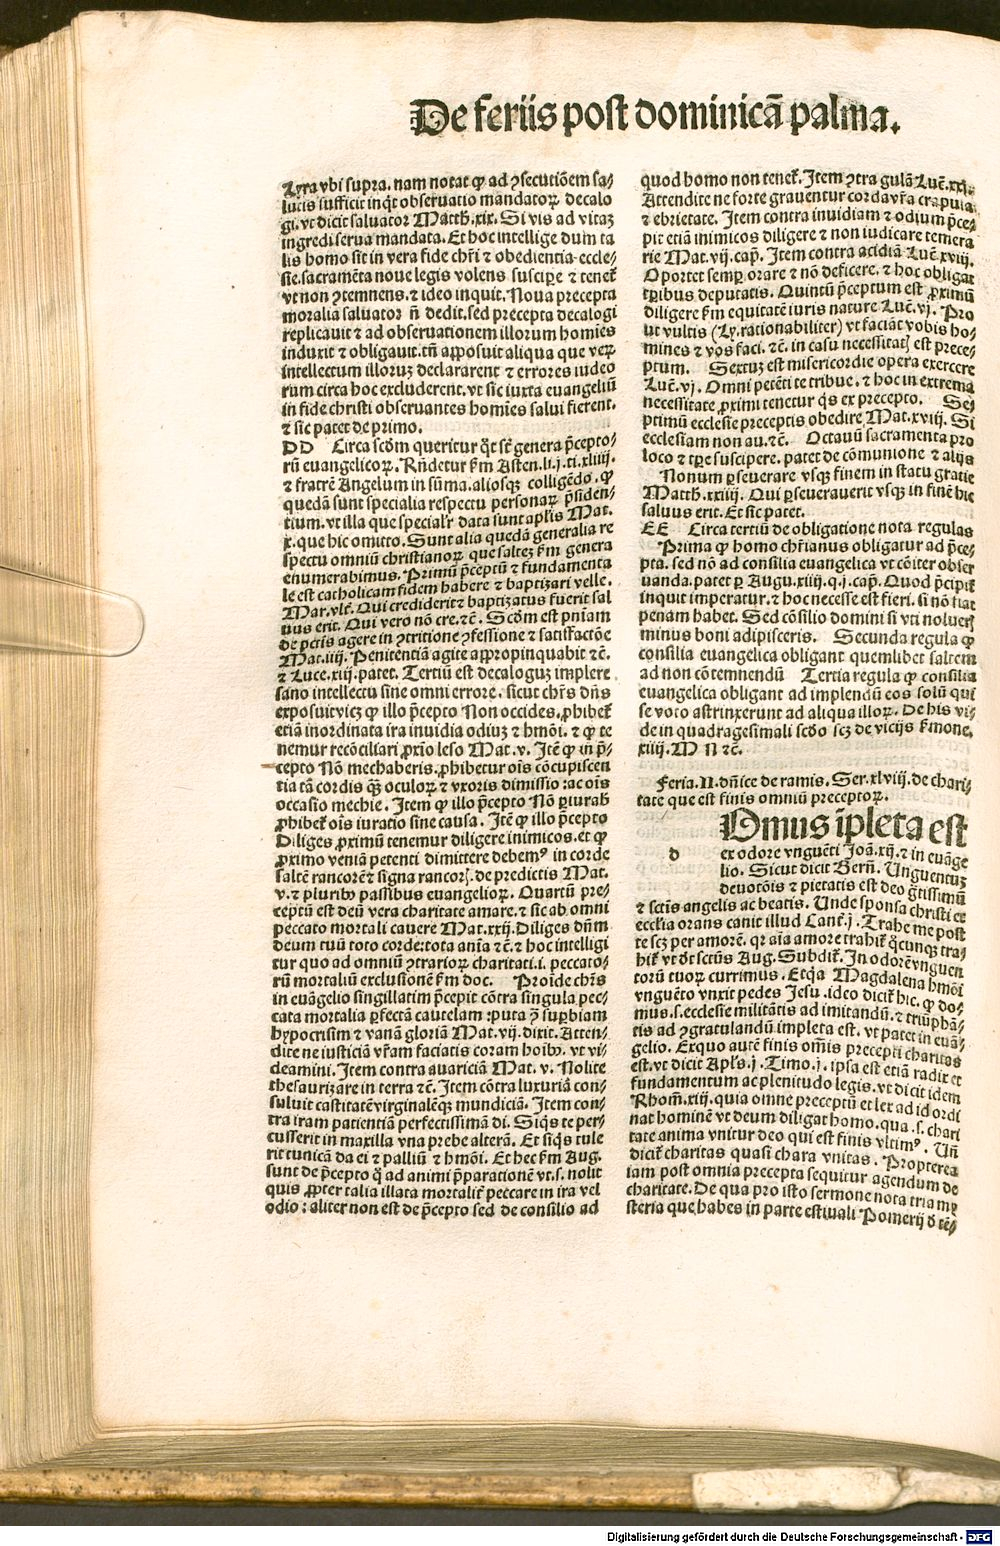 De feriis post dominicā palma.
Lyra vbi supra. nam notat ꝙ ad ꝯsecutiōem sa⸗
lutis sufficit inqͥt obseruatio mandatoꝝ decalo
gi. vt dicit saluator Matth. xix. Si vis ad vitaꝫ
ingredi serua mandata. Et hoc intellige dum ta
lis homo sit in vera fide chr̄i ⁊ obedientia eccle⸗
sie. sacramēta noue legis volens suscipe ⁊ teneat̉
vt non ꝯtemnens. ⁊ ideo inquit. Noua precepta
moralia saluator nō dedit. sed precepta decalogi
replicauit ⁊ ad obseruationem illorum homies
induxit ⁊ obligauit. tn̄ apposuit aliqua que verꝝ
intellectum illoruꝫ declararent ⁊ errores iudeo
rum circa hoc excluderent. vt sic iuxta euangeliū
in fide christi obseruantes homies salui fierent.
⁊ sic patet de primo.
DD Circa scd̄m queritur qͦt st̄ genera p̄cepto⸗
rū euangelicoꝝ. Rn̄detur ẜm Asten. li. j. ti. xliiij.
⁊ fratrē Angelum in sūma. aliosqꝫ colligēdo. ꝙ
quedā sunt specialia respectu personaꝝ p̄siden⸗
tium. vt illa que speciali̓ data sunt apl̄is Mat.
x. que hic omitto. Sunt alia quedā generalia re
spectu omniū christianoꝝ que salteꝫ ẜm genera
enumerabimus. Primū p̄ceptū ⁊ fundamenta
le est catholicam fidem habere ⁊ baptizari velle.
Mar. vlt̄. Qui crediderit ⁊ baptizatus fuerit sal
uus erit. Qui vero nō cre. ⁊c̄. Scd̄m est pn̄iam
de pctīs agere in ꝯtritione ꝯfessione ⁊ satiſfactōe
Mat. iiij. Penitentiā agite appropinquabit ⁊c̄.
⁊ Luce. xiij. patet. Tertiū est decaloguꝫ implere
sano intellectu sine omni errore. sicut chr̄s dn̄s
exposuit vicꝫ ꝙ illo p̄cepto Non occides. ꝓhibet̉
etiā inordinata ira inuidia odiuꝫ ⁊ hmōi. ⁊ ꝙ te
nemur recōciliari ꝓxīo leso Mat. v. Itē ꝙ in p̄⸗
cepto Nō mechaberis. ꝓhibetur oīs cōcupiscen
tia tā cordis qꝫ oculoꝝ ⁊ vxoris dimissio: ac oīs
occasio mechie. Item ꝙ illo p̄cepto Nō ꝑiurab̓
ꝓhibet̉ oīs iuratio sine causa. Itē ꝙ illo p̄cepto
Diliges ꝓximū tenemur diligere inimicos. et ꝙ
ꝓximo veniā petenti dimittere debemꝰ in corde
saltē rancorē ⁊ signa rancorꝭ. de predictis Mat.
v. ⁊ pluribꝰ passibus euangelioꝝ. Quartū pre⸗
ceptū est deū vera charitate amare. ⁊ sic ab omni
peccato mortali cauere Mat. xxij. Diliges dn̄m
deum tuū toto corde: tota anīa ⁊c̄. ⁊ hoc intelligi
tur quo ad omniū ꝯtrarioꝝ charitati. i. peccato⸗
rū mortaliū exclusionē ẜm doc. Proīde chr̄s
in euāgelio singillatim p̄cepit cōtra singula pec⸗
cata mortalia ꝑfectā cautelam: puta ꝯ̄ superbiam
hypocrisim ⁊ vanā gloriā Mat. vij. dixit. Atten⸗
dite ne iusticiā vr̄am faciatis coram hoībꝰ. vt vi⸗
deamini. Item contra auariciā Mat. v. Nolite
thesaurizare in terra ⁊c̄. Item cōtra luxuriā con⸗
suluit castitatē virginalēqꝫ mundiciā. Item con⸗
tra iram patientiā perfectissimā di. Siqͥs te per⸗
cusserit in maxilla vna prebe alterā. Et siqͥs tule
rit tunicā da ei ⁊ palliū ⁊ hmōi. Et hec ẜm Aug.
sunt de p̄cepto qͦ ad animi p̄parationē vt. s. nolit
quis ꝓpter talia illata mortalit̓ peccare in ira vel
odio: aliter non est de p̄cepto sed de consilio ad
quod homo non tenet̉. Item ꝯtra gulā Luc̄. xxj.
Attendite ne forte grauentur corda vr̄a crapula
⁊ ebrietate. Item contra inuidiam ⁊ odium p̄ce⸗
pit etiā inimicos diligere ⁊ non iudicare temera
rie Mat. vij. cap̄. Item contra acidiā Luc̄. xviij.
Oportet semꝑ orare ⁊ nō deficere. ⁊ hoc obligat
tꝑibus deputatis. Quintū p̄ceptum est ꝓximū
diligere ẜm equitatē iuris nature Luc̄. vj. Pro
ut vultis (Ly. rationabiliter) vt faciāt vobis ho⸗
mines ⁊ vos faci. ⁊c̄. in casu necessitatꝭ est prece⸗
ptum. Sextuꝫ est misericordie opera exercere
Luc̄. vj. Omni petēti te tribue. ⁊ hoc in extrema
necessitate ꝓximi tenetur qͥs ex precepto. Se⸗
ptimū ecclesie preceptis obedire Mat. xviij. Si
ecclesiam non au. ⁊c̄. Octauū sacramenta pro
loco ⁊ tꝑe suscipere. patet de cōmunione ⁊ alijs
Nonum ꝑseuerare vsqꝫ finem in statu gratie
Matth. xxiiij. Qui ꝑseuerauerit vsqꝫ in finē hic
saluus erit. Et sic patet.
EE Circa tertiū de obligatione nota regulas
Prima ꝙ homo chr̄ianus obligatur ad p̄ce⸗
pta. sed nō ad consilia euangelica vt cōiter obser
uanda. patet ꝑ Augu. xiiij. q. j. cap̄. Quod p̄cipit̉
inquit imperatur. ⁊ hoc necesse est fieri. si nō fiat
penam habet. Sed cōsilio domini si vti noluerꝭ
minus boni adipisceris. Secunda regula ꝙ
consilia euangelica obligant quemlibet saltem
ad non cōtemnendū Tertia regula ꝙ consilia
euangelica obligant ad implendū eos solū qui
se voto astrinxerunt ad aliqua illoꝝ. De his vi⸗
de in quadragesimali scd̄o scꝫ de vicijs ẜmone.
xiiij. M N ⁊c̄.
Feria. II. dn̄ice de ramis. Ser. xlviij. de chari⸗
tate que est finis omniū preceptoꝝ.
Omus īpleta est
d ex odore vnguēti Joā. xij. ⁊ in euāge
lio. Sicut dicit Bern̄. Unguentuꝫ
deuotōis ⁊ pietatis est deo gͣtissimū
⁊ sct̄is angelis ac beatis. Unde sponsa christi et
eccl̄ia orans canit illud Cant̄. j. Trahe me post
te scꝫ per amorē. qr aīa amore trahit̉ qͣcunqꝫ tra⸗
hit̉ vt dt̄ sctūs Aug. Subdit̉. In odorē vnguen
torū tuoꝝ currimus. Et qꝛ Magdalena hmōi
vnguēto vnxit pedes Jesu. ideo dicit̉ hic. ꝙ do⸗
mus. s. ecclesie militātis ad imitandū. ⁊ triūphā⸗
tis ad ꝯgratulandū impleta est. vt patet in euā⸗
gelio. Ex quo autē finis om̄is precepti charitas
est. vt dicit Apl̄s. j. Timo. j. ipsa est etiā radix et
fundamentum ac plenitudo legis. vt dicit idem
Rhom̄. xiij. quia omne preceptū et lex ad id ordi
nat hominē vt deum diligat homo. qua. s. chari
tate anima vnitur deo qui est finis vltimꝰ. Un̄
dicit̉ charitas quasi chara vnitas. Propterea
iam post omnia precepta sequitur agendum de
charitate. De qua pro isto sermone nota tria my
steria que habes in parte estiuali Pomerij d̓ tē⸗
Digitalisierung gefördert durch die Deutsche Forschungsgemeinschaft - DFG